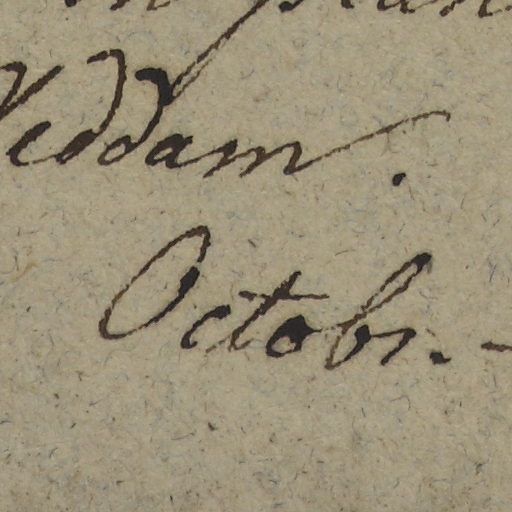 Veddam.
Octobr. –